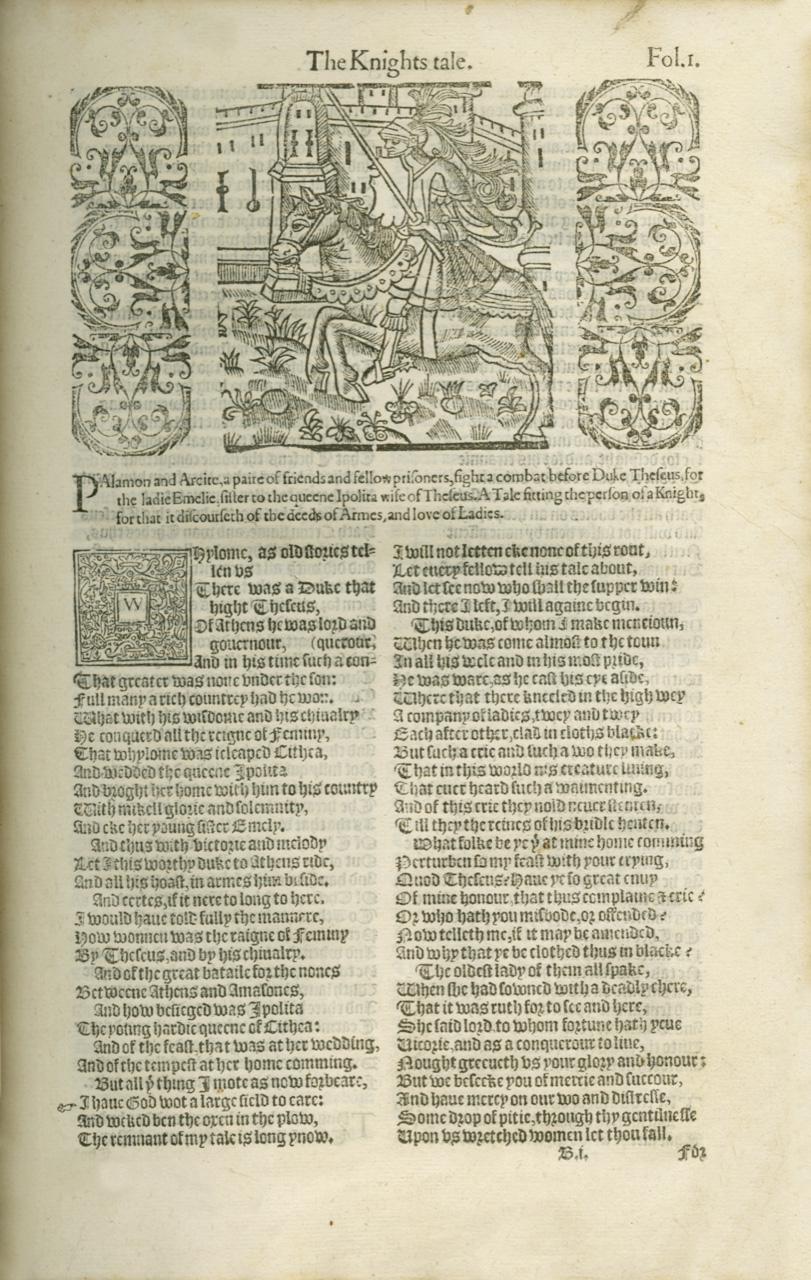 The Knights tale.
Fol.1.
PAlamon and Arcite, a paire of friends and fellow prisoners, fight a combat before Duke Theseus, for
the ladie Emelie, sister to the queene Ipolita wife of Theseus. A Tale fitting the person of a Knight,
for that it discourseth of the deeds of Armes, and love of Ladies.
WHylome, as old stories tel=
len vs
There was a Duke that
hight Theseus,
Of Athens he was lord and
gouernour, (querour,
And in his time such a con=
That greater was none vnder the son:
Full many a rich countrey had he won.
What with his wisdome and his chiualry
He conquerd all the reigne of Feminy,
That whylome was icleaped Cithea,
And wedded the queene Ipolita
And broght her home with him to his country
With mikell glorie and solemnity,
And eke her young sister Emely.
And thus with victorie and melody
Let I this worthy duke to Athens ride,
And all his hoast, in armes him beside.
And certes, if it nere to long to here.
I would haue told fully the mannere,
How wonnen was the raigne of Feminy
By Theseus, and by his chiualry.
And of the great bataile for the nones
Betweene Athens and Amasones,
And how besieged was Ipolita
The yong hardie queene of Cithea:
And of the feast, that was at her wedding,
And of the tempest at her home comming.
But all yͭ thing I mote as now forbeare,
☞ I haue God wot a large field to eare:
And weked ben the oxen in the plow,
The remnant of my tale is long ynow.
I will not letten eke none of this rout,
Let euery fellow tell his tale about,
And let see now who shall the supper win:
And there I left, I will againe begin.
This duke, of whom I make mencioun,
When he was come almost to the toun
In all his wele and in his most pride,
He was ware, as he cast his eye aside,
Where that there kneeled in the high wey
A company of ladies, twey and twey
Each after other, clad in cloths blacke:
But such a crie and such a wo they make,
That in this world nis creature liuing,
That euer heard such a waimenting.
And of this crie they nold neuer stenten,
Till they the reines of his bridle henten.
What folke be ye yͭ at mine home comming
Perturben so my feast with your crying,
Quod Theseus? Haue ye so great enuy
Of mine honour, that thus complaine & crie?
Or who hath you misbode, or offended?
Now telleth me, if it may be amended,
And why that ye be clothed thus in blacke?
The oldest lady of them all spake,
When she had sowned with a deadly chere,
That it was ruth for to see and here,
She said lord, to whom fortune hath yeue
Uicorie, and as a conquerour to liue,
Nought greeueth vs your glory and honour:
But we beseeke you of mercie and succour,
And haue mercy on our wo and distresse,
Some drop of pitie, through thy gentilnesse
Upon vs wretched women let thou fall.
B.i.
For